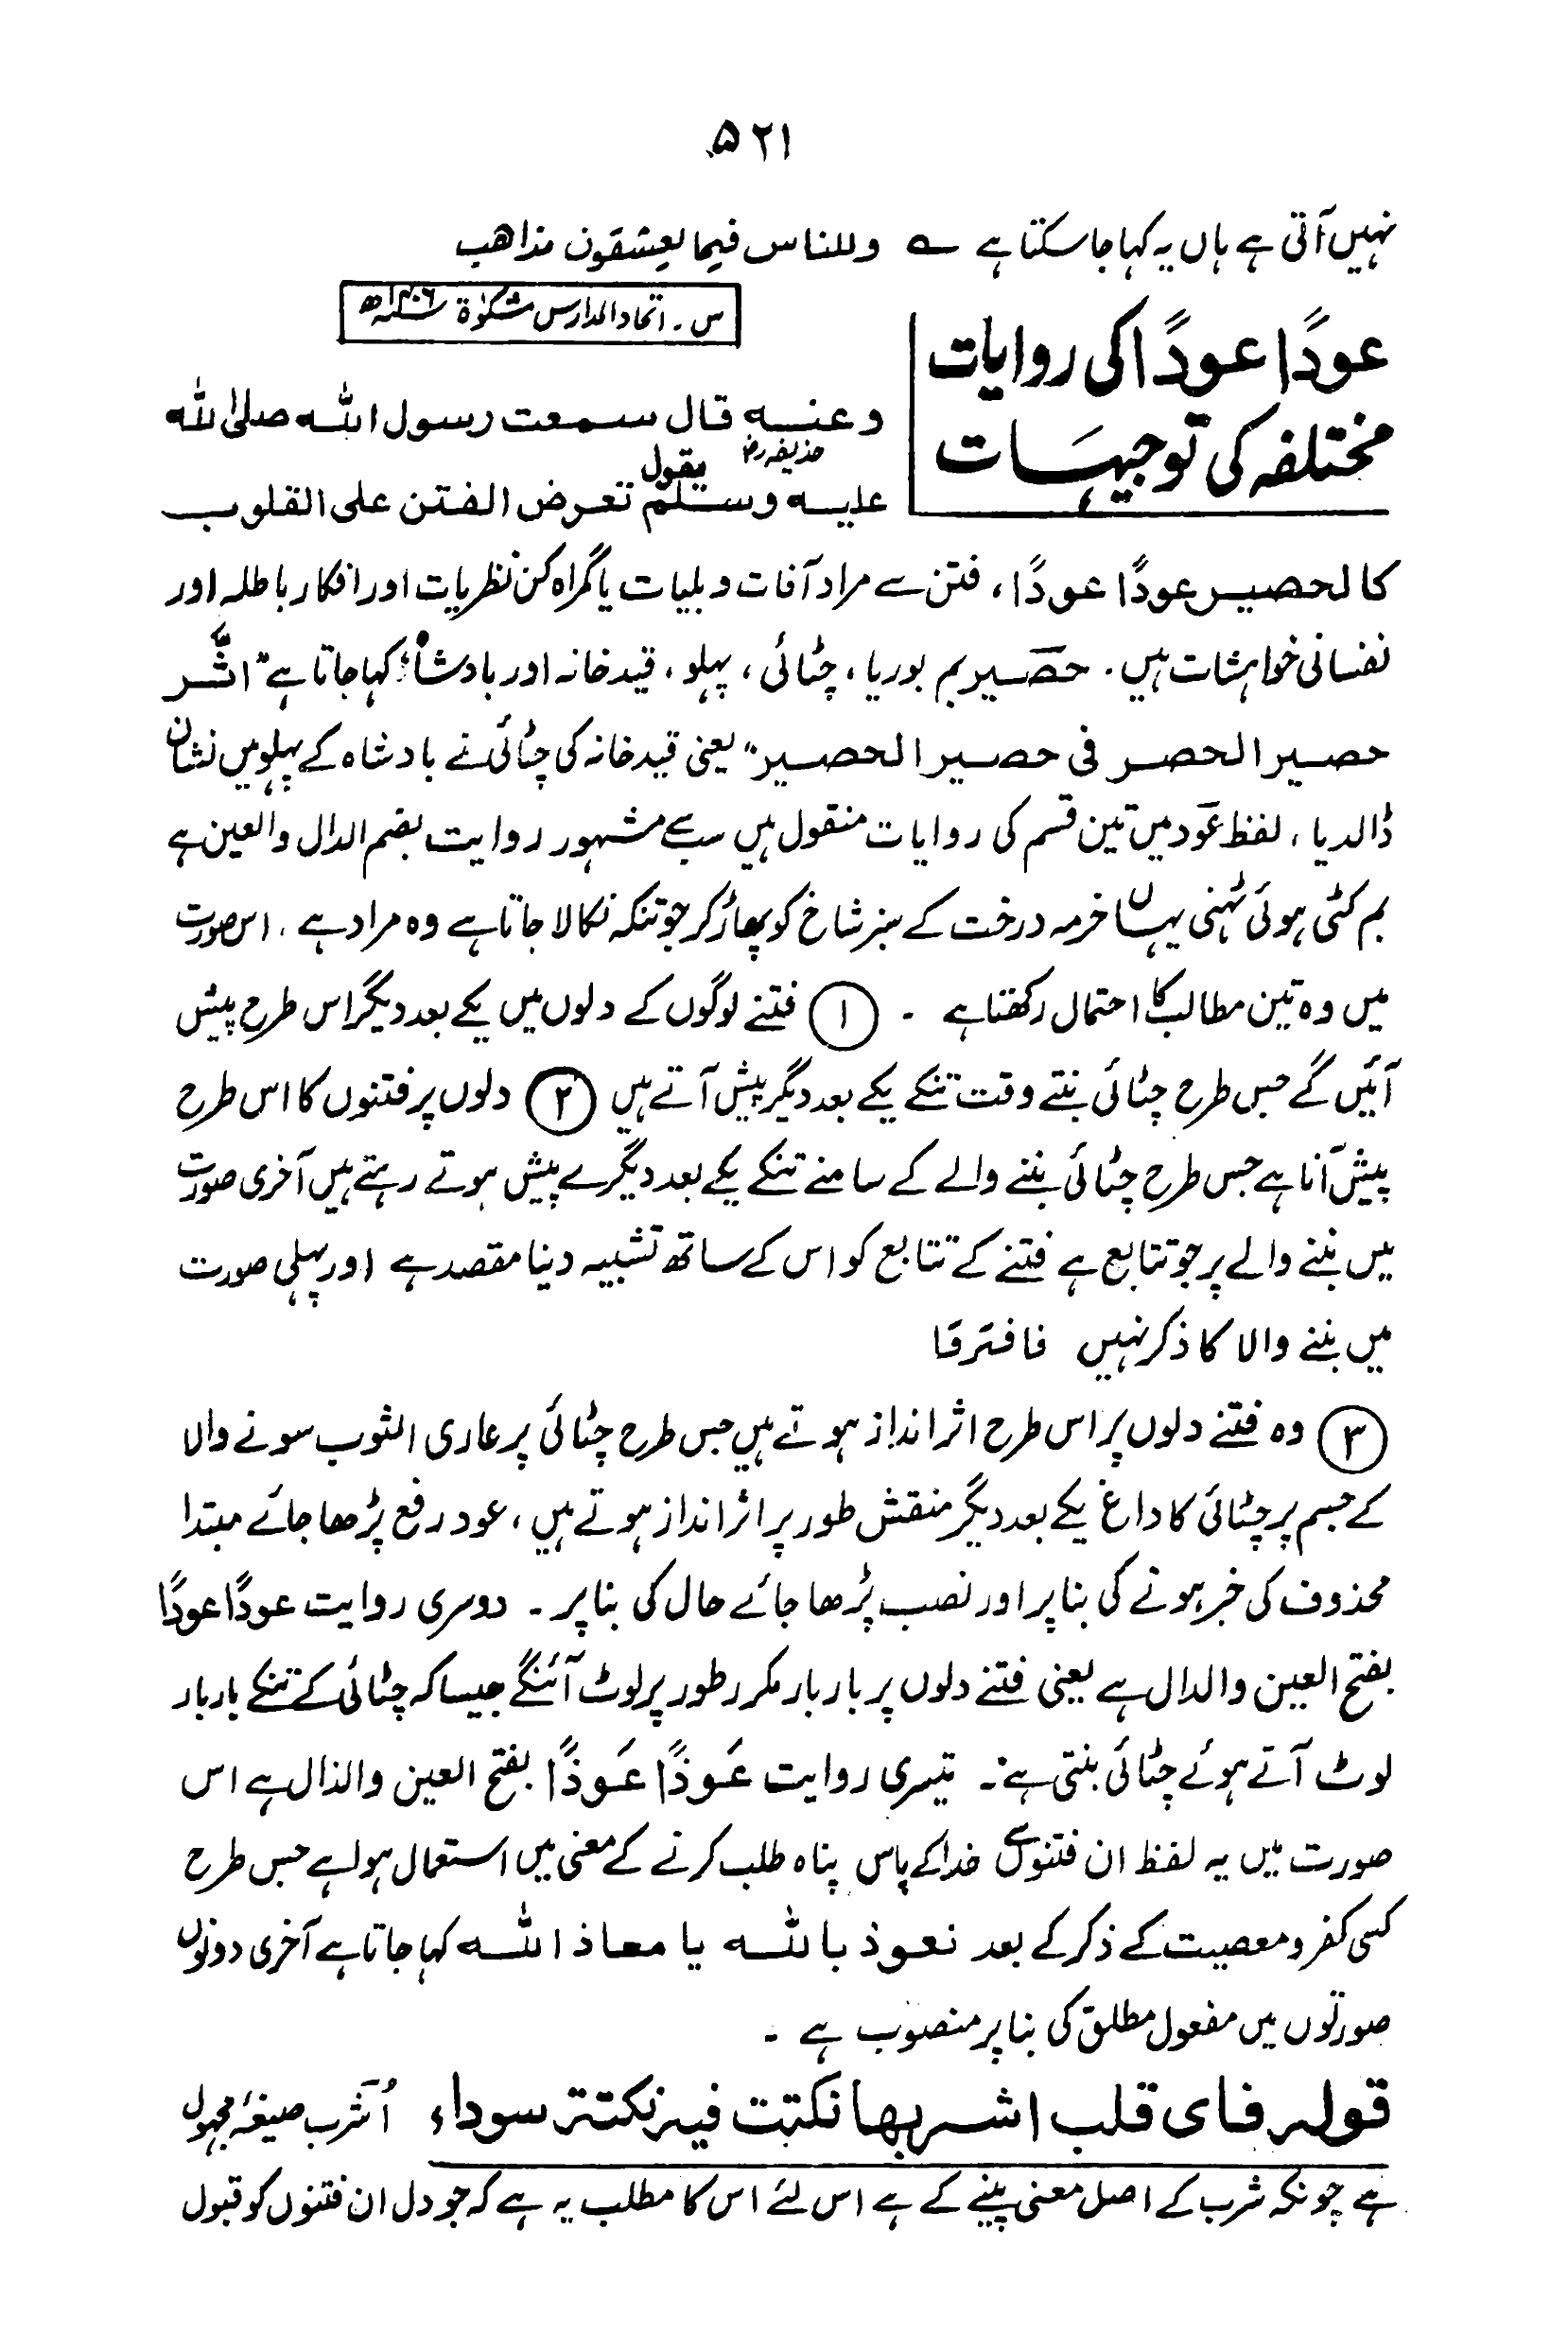 ۵۲۱
نہیں آتی ہے ہاں یہ کہا جا سکتا ہے ؎ وللناس فیما یعشقون مذاھب
س ۔ اتحاد المدارس مشکوٰۃ سنہ ۱۴۰۶ھ
عودًا عودًا کی روایات
مختلفہ کی توجیہات
وعنہ قال سمعت رسول اللہ صلی اللہ
حذیفہ رض
یقول
علیہ وسلم تعرض الفتن علی القلوب
کالحصیر عودًا عودًا ، فتن سے مراد آفات و بلیات یا گمراہ کن نظریات اور افکار باطلہ اور
نفسانی خواہشات ہیں ۔ حصیر بم بوریا ، چٹائی ، پہلو ، قید خانہ اور بادشاہ ؛ کہا جاتا ہے " اثّر
حصیر الحصر فی حصیر الحصیر " یعنی قید خانہ کی چٹائی نے بادشاہ کے پہلو میں نشان
ڈالدیا ، لفظ عود میں تین قسم کی روایات منقول ہیں سب سے مشہور روایت بضم الدال والعین ہے
بم کٹی ہوئی ٹہنی یہاں خرمہ درخت کے سبز شاخ کو پھاڑ کر جو تنکہ نکالا جاتا ہے وہ مراد ہے ۔ اس صورت
میں وہ تین مطالب کا احتمال رکھتا ہے ۔ ① فتنے لوگوں کے دلوں میں یکے بعد دیگر اس طرح پیش
آئیں گے جس طرح چٹائی بنتے وقت تنکے یکے بعد دیگر پیش آتے ہیں ② دلوں پر فتنوں کا اس طرح
پیش آنا ہے جس طرح چٹائی بننے والے کے سامنے تنکے یکے بعد دیگرے پیش ہوتے رہتے ہیں آخری صورت
میں بننے والے پر جو تتابع ہے فتنے کے تتابع کو اس کے ساتھ تشبیہ دینا مقصد ہے اور پہلی صورت
میں بننے والا کا ذکر نہیں فافترقا
③ وہ فتنے دلوں پر اس طرح اثر انداز ہوتے ہیں جس طرح چٹائی پر عاری الثوب سونے والا
کے جسم پر چٹائی کا داغ یکے بعد دیگر منقش طور پر اثر انداز ہوتے ہیں ، عود رفع پڑھا جائے مبتدا
محذوف کی خبر ہونے کی بنا پر اور نصب پڑھا جائے حال کی بنا پر ۔ دوسری روایت عودًا عودًا
بفتح العین والدال ہے یعنی فتنے دلوں پر بار بار مکرر طور پر لوٹ آئنگے جیسا کہ چٹائی کے تنکے بار بار
لوٹ آتے ہوئے چٹائی بنتی ہے ۔ تیسری روایت عَوذًا عَوذًا بفتح العین والذال ہے اس
صورت میں یہ لفظ ان فتنوں سے خدا کے پاس پناہ طلب کرنے کے معنی میں استعمال ہوا ہے جس طرح
کسی کفر و معصیت کے ذکر کے بعد نعوذ باللہ یا معاذ اللہ کہا جاتا ہے آخری دونوں
صورتوں میں مفعول مطلق کی بنا پر منصوب ہے ۔
قولہ فای قلب اشربھا نکتت فیہ نکتۃ سوداء اُشرب صیغۂ مجہول
ہے چونکہ شرب کے اصل معنی پینے کے ہے اس لئے اس کا مطلب یہ ہے کہ جو دل ان فتنوں کو قبول